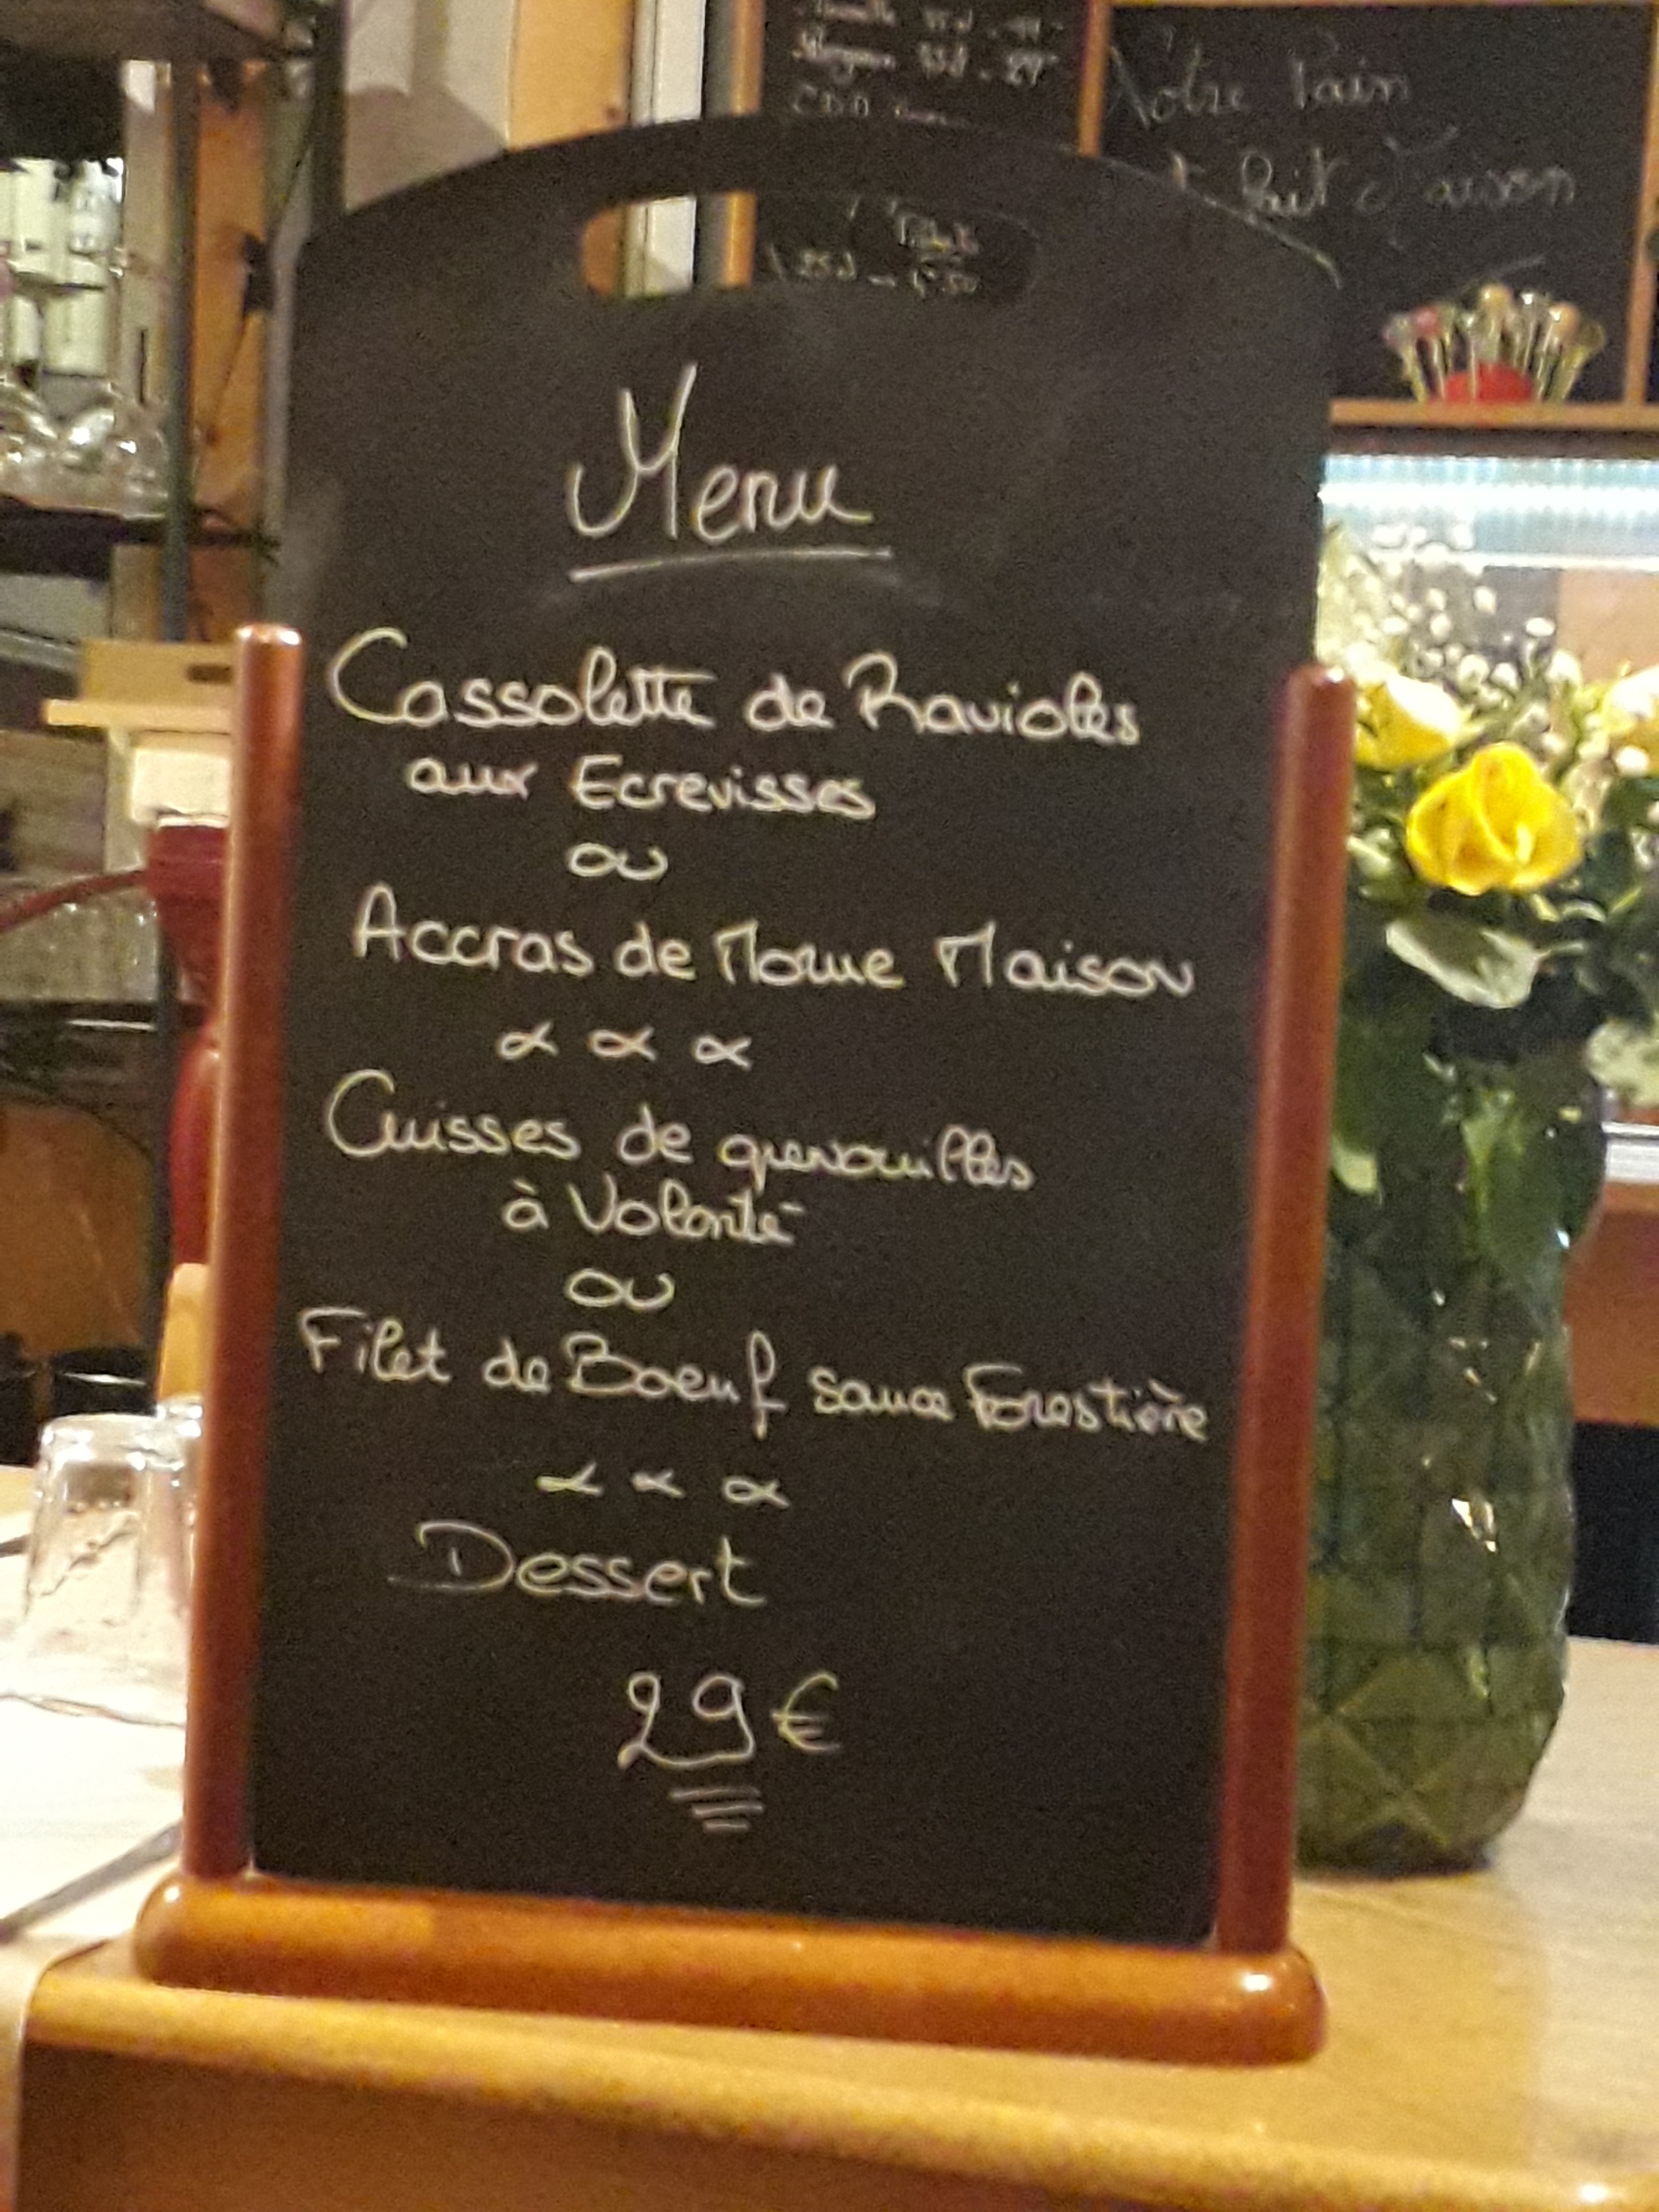 Notre Pain
fait Maison
Menu
Cassolette de Ravioles
aux Ecrevisses
ou
Accras de Morue Maison
Cuisses de grenouilles
à Volonté
ou
Filet de Boeuf sauce Forestière
Dessert
29€